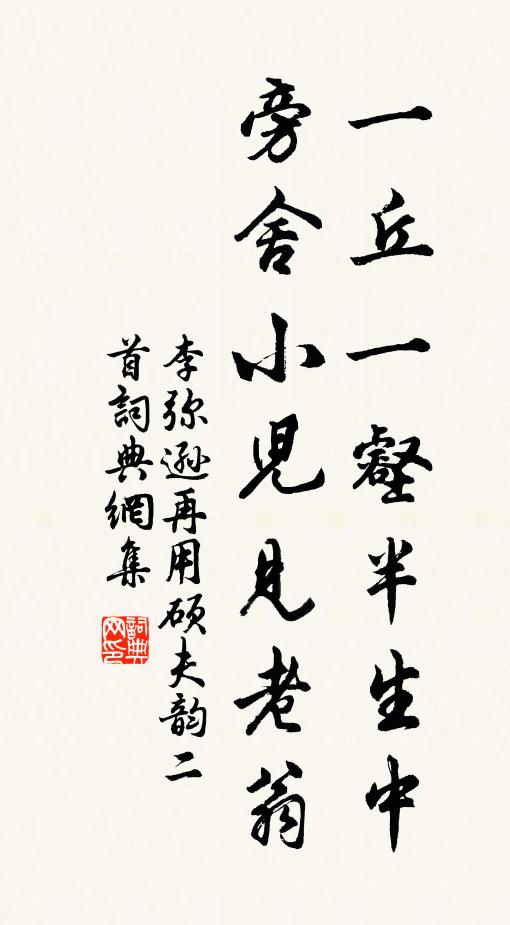 一丘一壑半生中
旁舍小児見老翁
李弥遜再用硕夫韵二
首詞典網集
詞典
网印